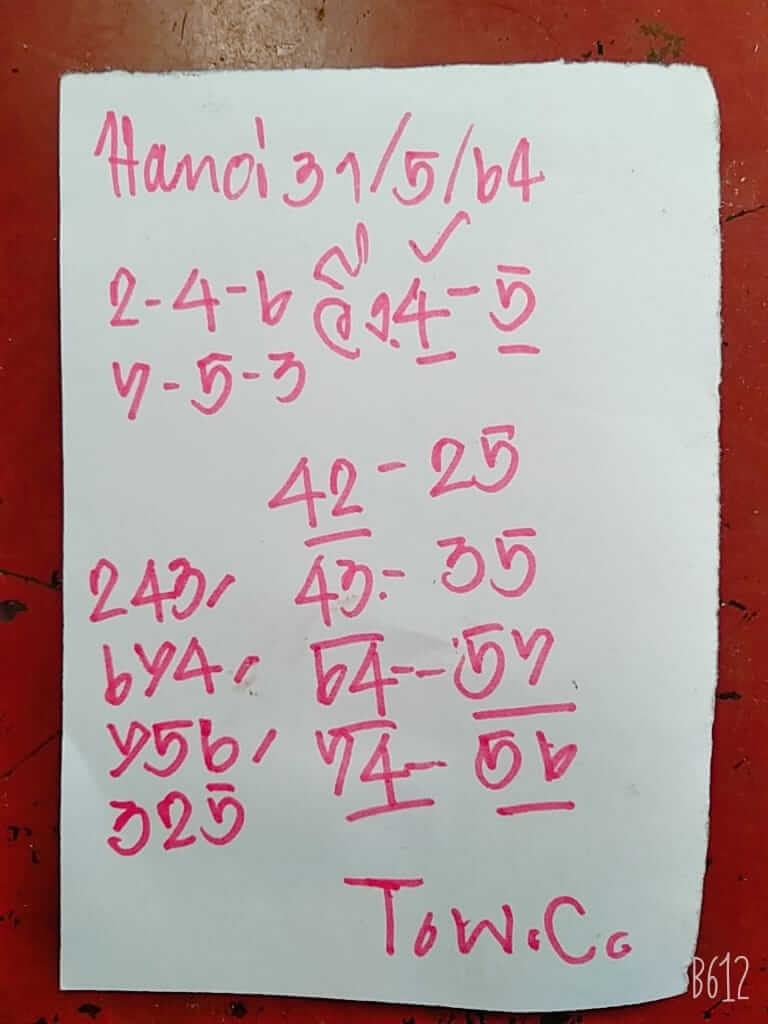 Hanoi 31/5/64
2-4-6 วิ่ง.4-5
7-5-3
42-25
243, 43:- 35
674, 64--57
756, 74-56
325
T.W.C.
B612